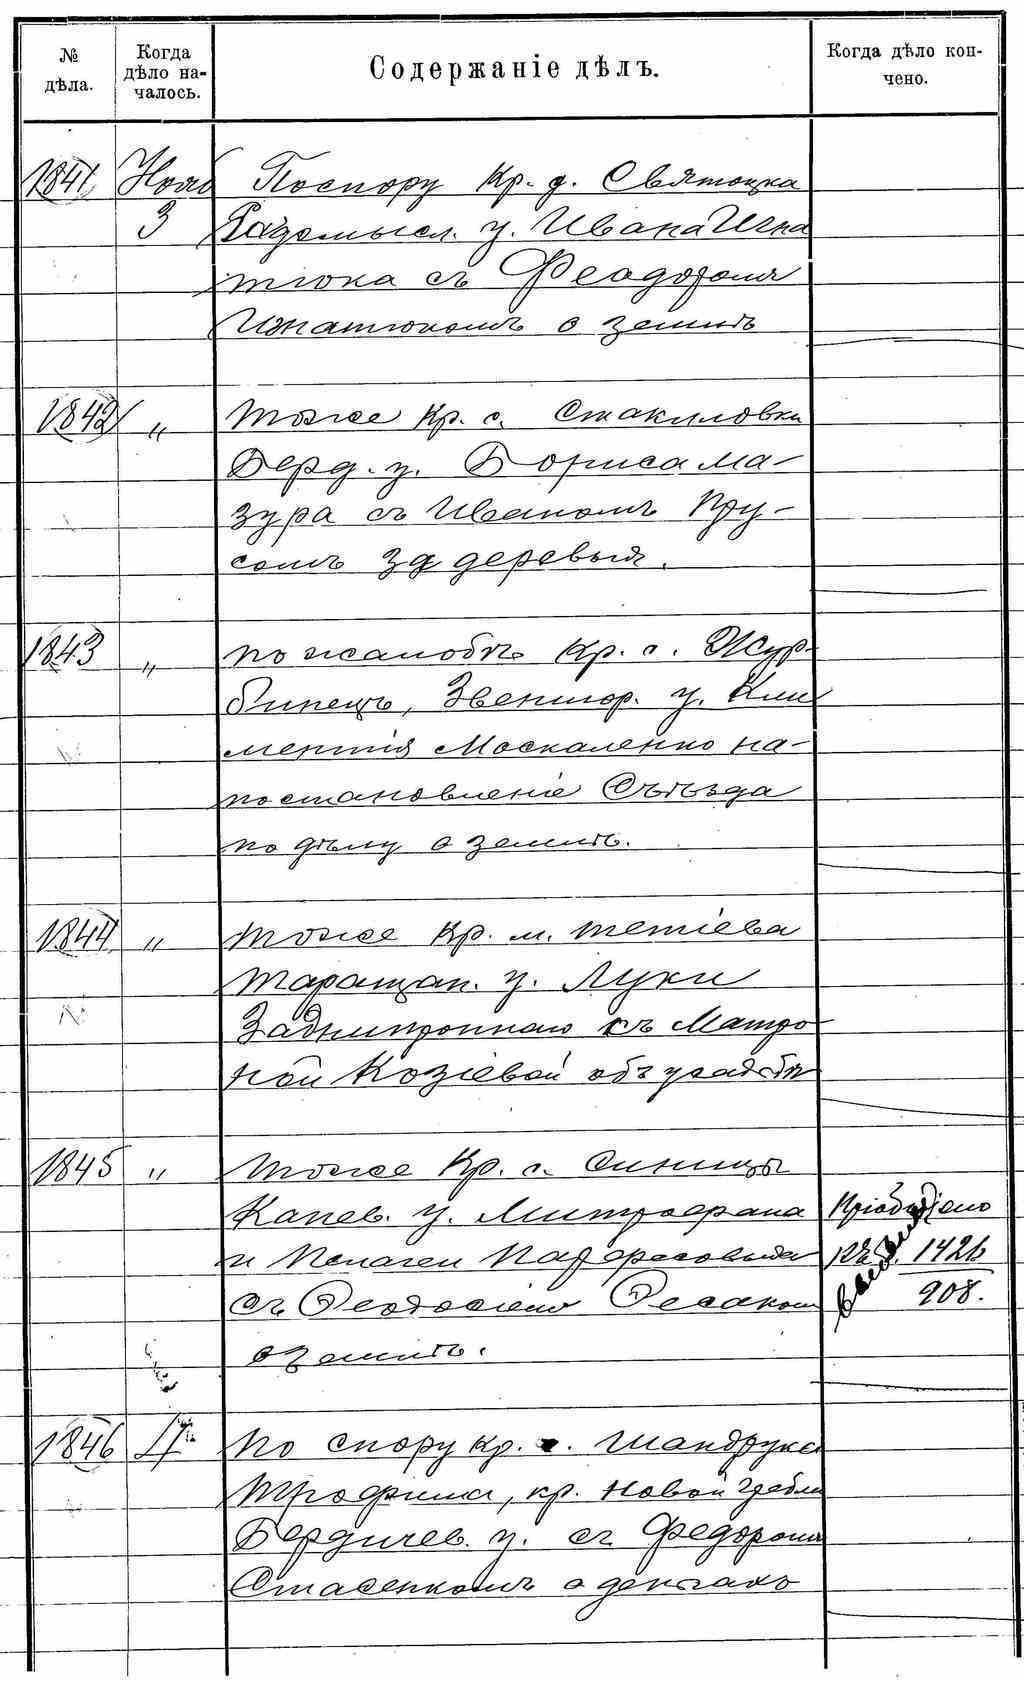 № дѣла.
Когда дѣло на-
чалось.
Содержаніе дѣлъ.
Когда дѣло кон-
чено.
1841 Нояб По спору Кр. д. Святоцка
3 Радомысл. у. Ивана Игна
тюка съ Феодоромъ
Игнатюкомъ о землѣ
1842 " тоже Кр. с. Стакиловки
Берд. у. Бориса Ма-
зура съ Иваномъ Пру-
сомъ за деревья.
1843 " по жалобѣ Кр. с. Жур-
бинецъ, Звенигор. у. Кли
ментія Москаленко на-
постановленіе Съѣзда
по дѣлу о землѣ.
1844 " тоже Кр. м. Тетіева
Таращан. у. Луки
съ Матро
ной Козіевой объ усадьбѣ
1845 " тоже Кр. с. Синицы
Канев. у. Митрофана
и Пелагеи
съ Феодосіемъ
о землѣ.
Пріобщено
къ 1426
908.
1846 4 по спору кр. Шандрука
Трофима, кр. Новой Гребли
Бердичев. у. съ Федоромъ
Стасенкомъ о деньгахъ